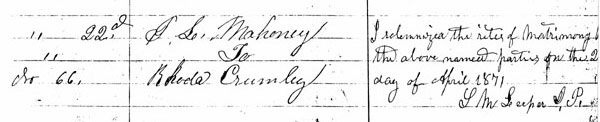 " 22d S. L. Mahoney
" To
No 66. Rhoda Crumley
I solemnized the rites of Matrimony
the above named parties on the 2
day of April 1871
L M Leeper J. P.